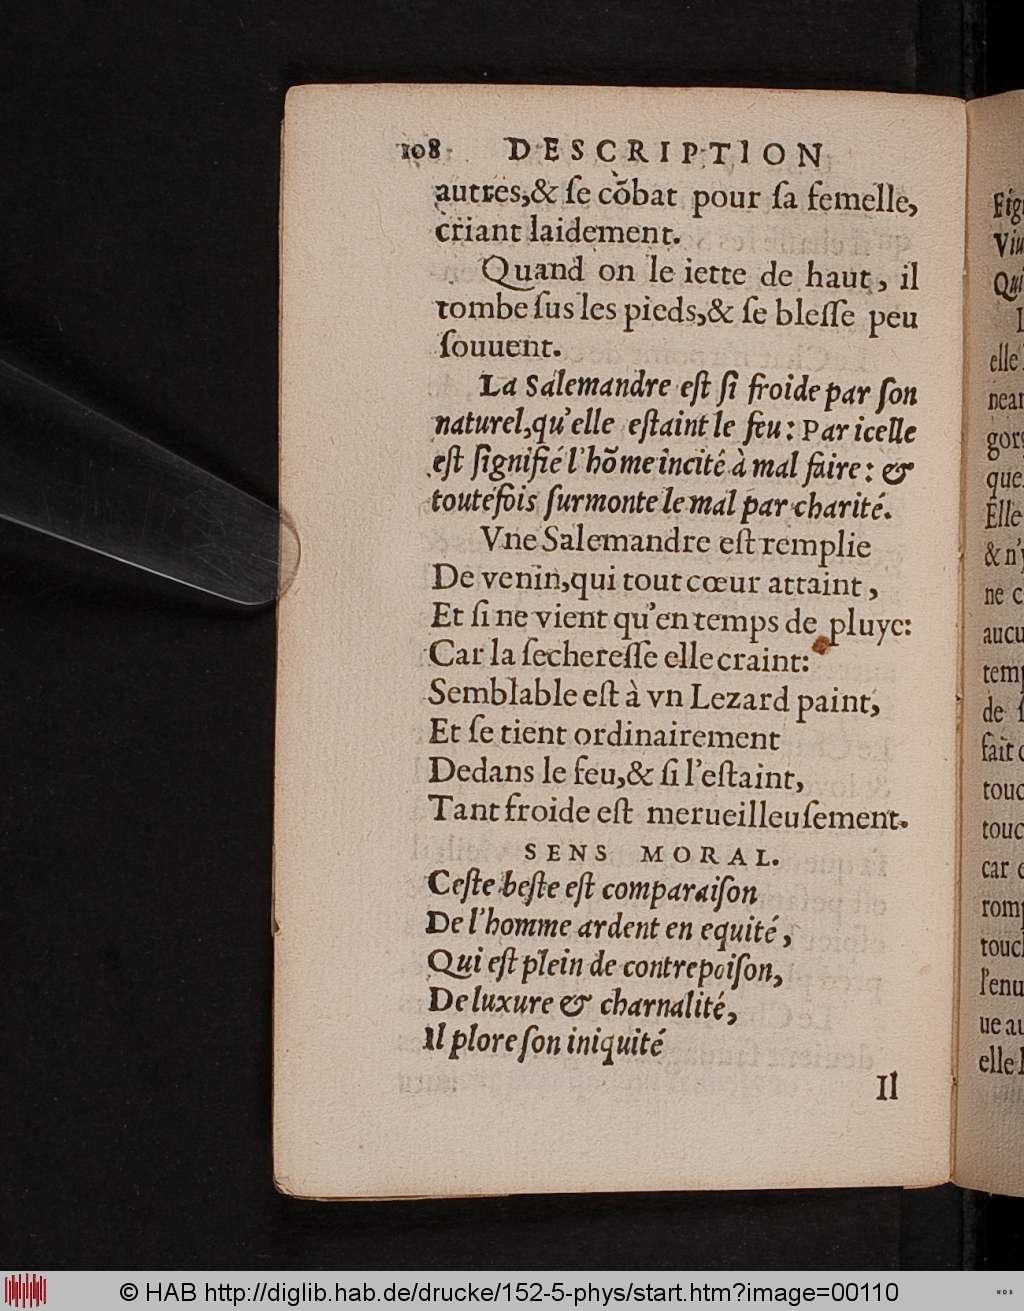 108 DESCRIPTION
autres,& ſe cõbat pour ſa femelle,
criant laidement.
Quand on le iette de haut, il
tombe ſus les pieds,& ſe bleſſe peu
ſouuent.
La Salemandre eſt ſi froide par ſon
naturel,qu'elle eſtaint le feu: Par icelle
eſt ſignifié l'hõme incité à mal faire: &
toutefois ſurmonte le mal par charité.
Vne Salemandre eſt remplie
De venin,qui tout cœur attaint,
Et ſi ne vient qu'en temps de pluye:
Car la ſechereſſe elle craint:
Semblable eſt à vn Lezard paint,
Et ſe tient ordinairement
Dedans le feu,& ſi l'eſtaint,
Tant froide eſt merueilleuſement.
SENS MORAL.
Ceſte beſte eſt comparaiſon
De l'homme ardent en equité,
Qui eſt plein de contrepoiſon,
De luxure & charnalité,
Il plore ſon iniquité
Il
Viu
Qui
elle
near
gorg
que
Elle
& n'y
ne c
aucu
temp
de ſ
fait
touc
touc
car
romp
touch
l'enu
ue au
elle
© HAB http://diglib.hab.de/drucke/152-5-phys/start.htm?image=00110